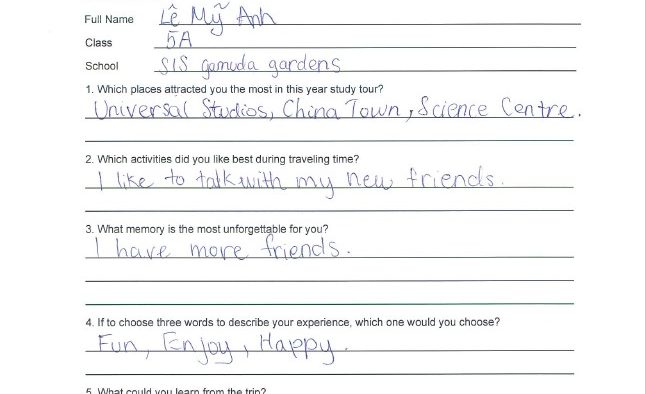 Full Name Lê Mỹ Anh
Class 5A
School SIS gamuda gardens
1. Which places attracted you the most in this year study tour?
Universal Studios, China Town, Science Centre.
2. Which activities did you like best during traveling time?
I like to talk with my new friends.
3. What memory is the most unforgettable for you?
I have more friends.
4. If to choose three words to describe your experience, which one would you choose?
Fun, Enjoy, Happy.
5. What could you learn from the trip?